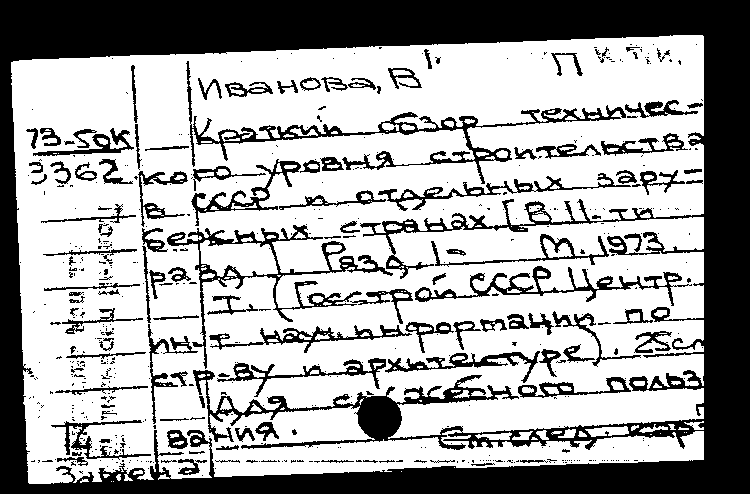 Иванова, В
П к.т.и.
73-50к
3362
Краткий обзор техничес-
кого уровня строительства
в СССР и отдельных зару-
бежных странах. [В 11-ти
разд.]. Разд. 1- М., 1973.
т. (Госстрой СССР. Центр.
ин-т науч. информации по
стр-ву и архитектуре). 25см
Для служебного польз
вания.
См. след. кар-
Замена